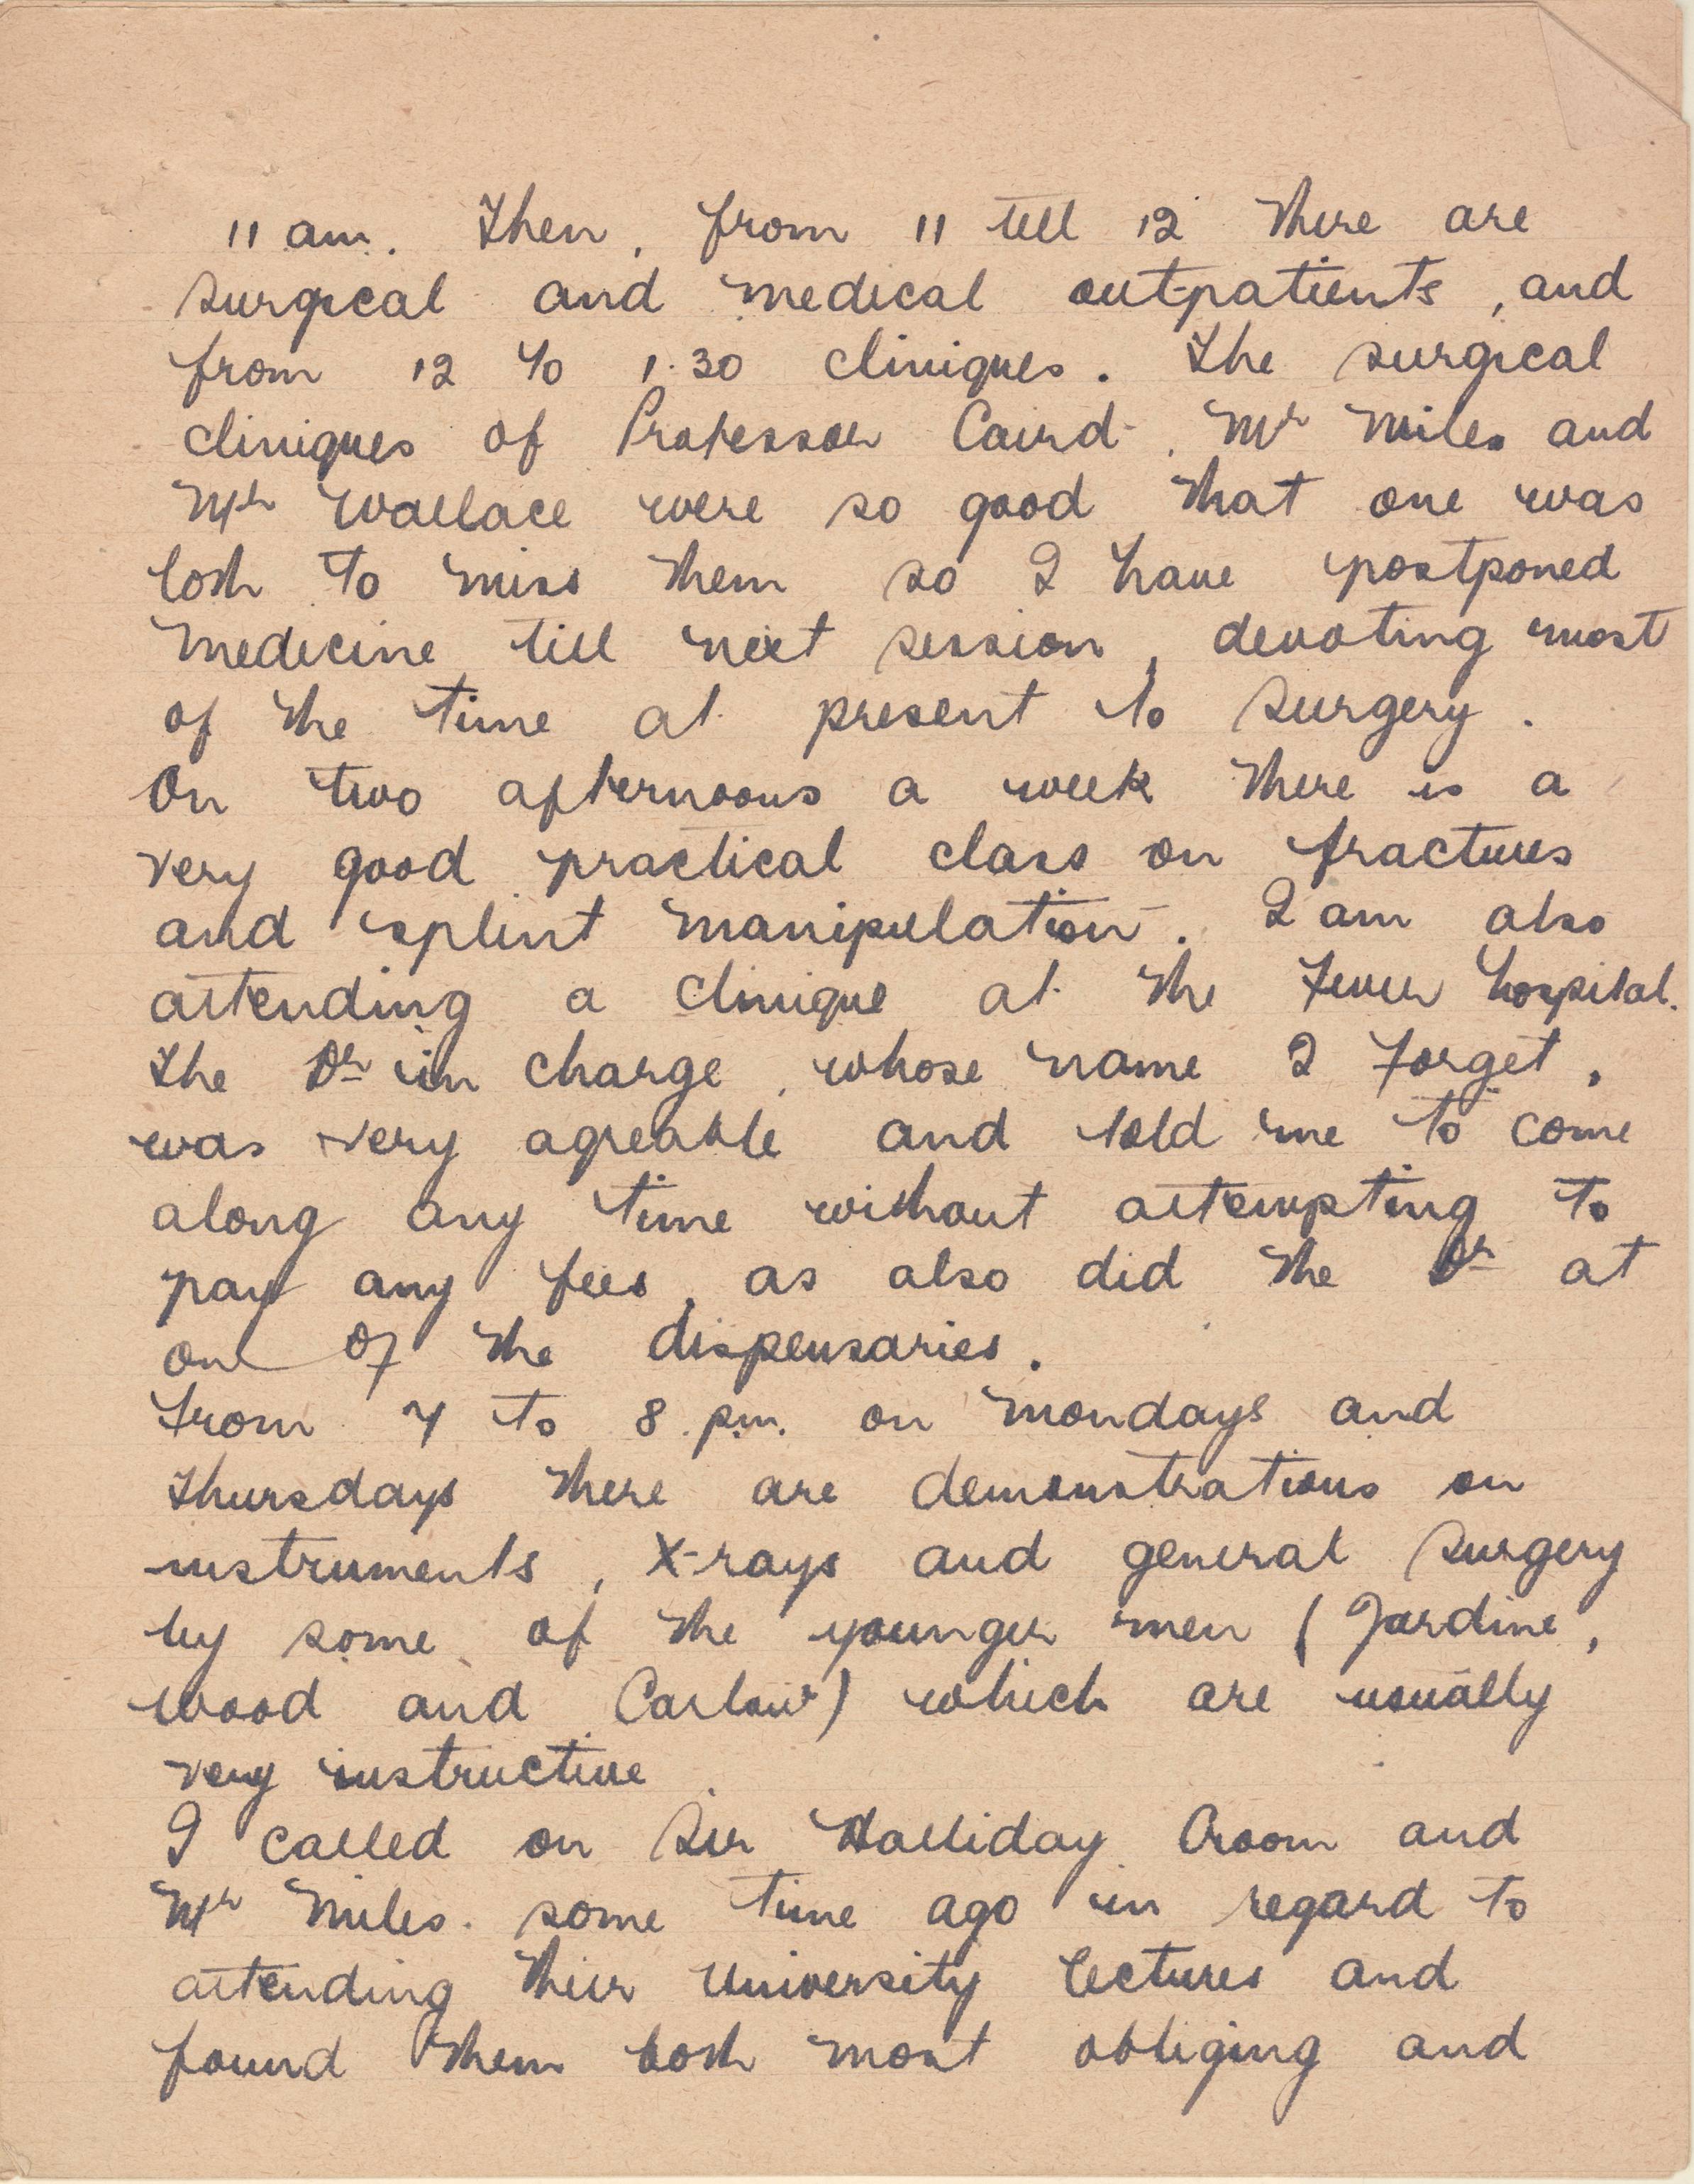 11 am. Then, from 11 till 12 there are
surgical and medical outpatients, and
from 12 to 1.30 cliniques. The surgical
cliniques of Professor Caird, Mr Miles and
Mr Wallace were so good that one was
loth to miss them so I have postponed
medicine till next session, devoting most
of the time at present to surgery.
On two afternoons a week there is a
very good practical class on fractures
and splint manipulation. I am also
attending a clinique at the Fever hospital.
The Dr in charge, whose name I forget,
was very agreable and told me to come
along any time without attempting to
pay any fees, as also did the Dr at
one of the dispensaries.
From 7 to 8 p.m. on Mondays and
Thursdays there are demonstrations on
instruments, X-rays and general surgery
by some of the younger men (Jardine,
Wood and Carlow) which are usually
very instructive.
I called on Sir Halliday Croom and
Mr Miles some time ago in regard to
attending their University lectures and
found them both most obliging and